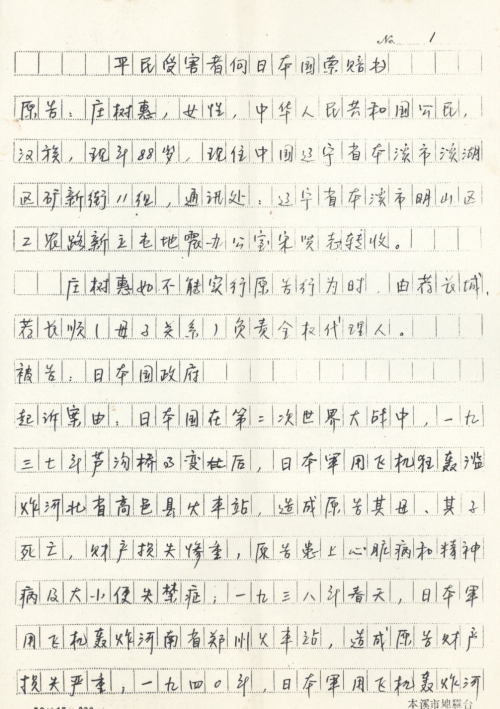 No. 1
平民受害者向日本国索赔书
原告：庄树惠，女性，中华人民共和国公民，
汉族，现年88岁，现住中国辽宁省本溪市溪湖
区矿新街11组，通讯处：辽宁省本溪市明山区
工农路新立屯地震办公室宋贤转收。
庄树惠如不能实行原告行为时，由长城、
长顺（母子关系）负责全权代理人。
被告：日本国政府
起诉案由：日本国在第二次世界大战中，一九
三七年芦沟桥事变后，日本軍用飞机狂轰滥
炸河北省高邑县火车站，造成原告其母、其子
死亡，财产损失惨重，原告患上心脏病和精神
病及大小便失禁症；一九三八年春天，日本軍
用飞机轰炸河南省郑州火车站，造成原告财产
损失严重；一九四〇年，日本軍用飞机轰炸河
本溪市地震台